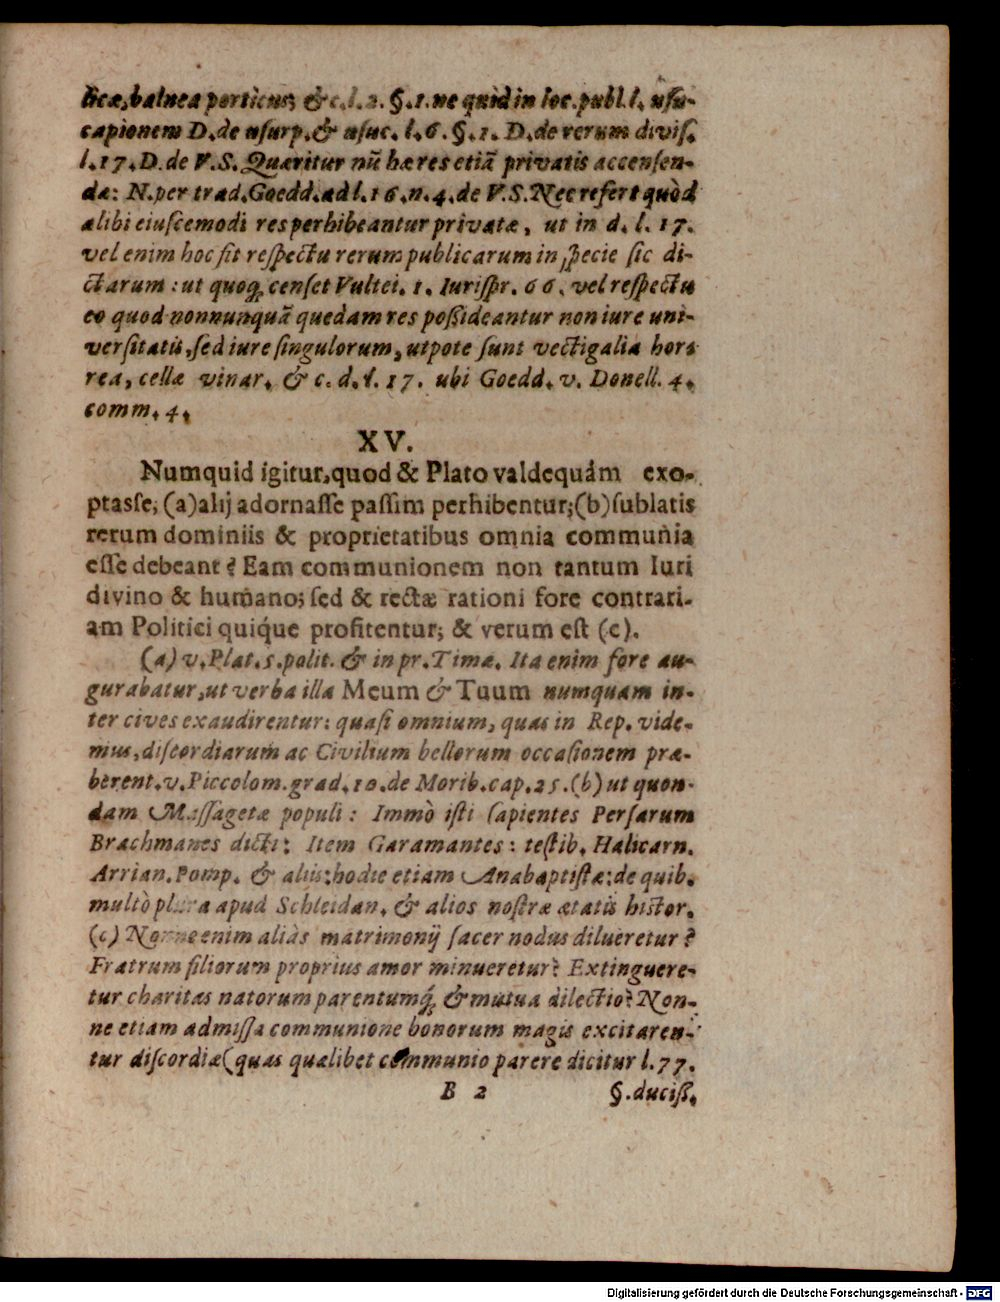 licæ, balnea porticus, & c. l. 2. §. 1. ne quid in loc. publ. l. usu-
capionem D. de usurp. & usuc. l. 6. §. 1. D. de rerum divis.
l. 17. D. de V. S. Quæritur nũ hæ res etiã privatis accensen-
dæ: N. per trad. Goedd. ad l. 16. n. 4. de V. S. Nec refert quòd
alibi eiuscemodi res perhibeantur privatæ, ut in d. l. 17.
vel enim hoc fit respectu rerum publicarum in specie sic di-
ctarum: ut quoq; censet Vultei. 1. Iurispr. 66. vel respectu
eo quod nonnunquã quedam res possideantur non iure uni-
versitatis, sed iure singulorum, utpote sunt vectigalia hor-
rea, cellæ vinar. & c. d. l. 17. ubi Goedd. v. Donell. 4.
comm. 4.
XV.
Numquid igitur, quod & Plato valdequàm exo-
ptasse, (a) alij adornasse passim perhibentur; (b) sublatis
rerum dominiis & proprietatibus omnia communia
esse debeant? Eam communionem non tantum Iuri
divino & humano; sed & rectæ rationi fore contrari-
am Politici quiq́ue profitentur; & verum est (c).
(a) v. Plat. 5. polit. & in pr. Timæ. Ita enim fore au-
gurabatur, ut verba illa Meum & Tuum numquam in-
ter cives exaudirentur: quasi omnium, quas in Rep. vide-
mus, discordiarum ac Civilium bellorum occasionem præ-
berent. v. Piccolom. grad. 10. de Morib. cap. 25. (b) ut quon-
dam Massagetæ populi: Immò isti sapientes Persarum
Brachmanes dicti: Item Garamantes: testib. Halicarn.
Arrian. Pomp. & aliis: hodie etiam Anabaptistæ: de quib.
multò plura apud Schleidan. & alios nostræ ætatis histor.
(c) Nonne enim aliàs matrimonij sacer nodus dilueretur?
Fratrum filiorum proprius amor minueretur? Extinguere-
tur charitas natorum parentumq́; & mutua dilectio? Non-
ne etiam admissa communione bonorum magis excitaren-
tur discordiæ (quas qualibet communio parere dicitur l. 77.
B 2 §. duciss.
Digitalisierung gefördert durch die Deutsche Forschungsgemeinschaft - DFG